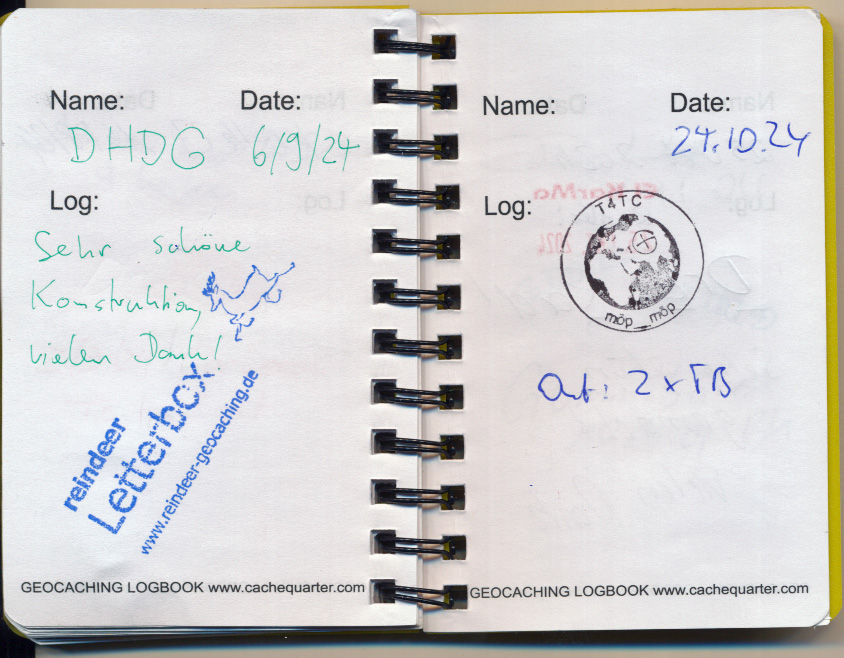 Name: Date:
DHDG 6/9/24
Log:
Sehr schöne
Konstruktion,
vielen Dank!
reindeer
Letterbox
www.reindeer-geocaching.de
GEOCACHING LOGBOOK www.cachequarter.com
Name: Date:
24.10.24
Log:
T4TC
möp_möp
Out: 2xTB
GEOCACHING LOGBOOK www.cachequarter.com